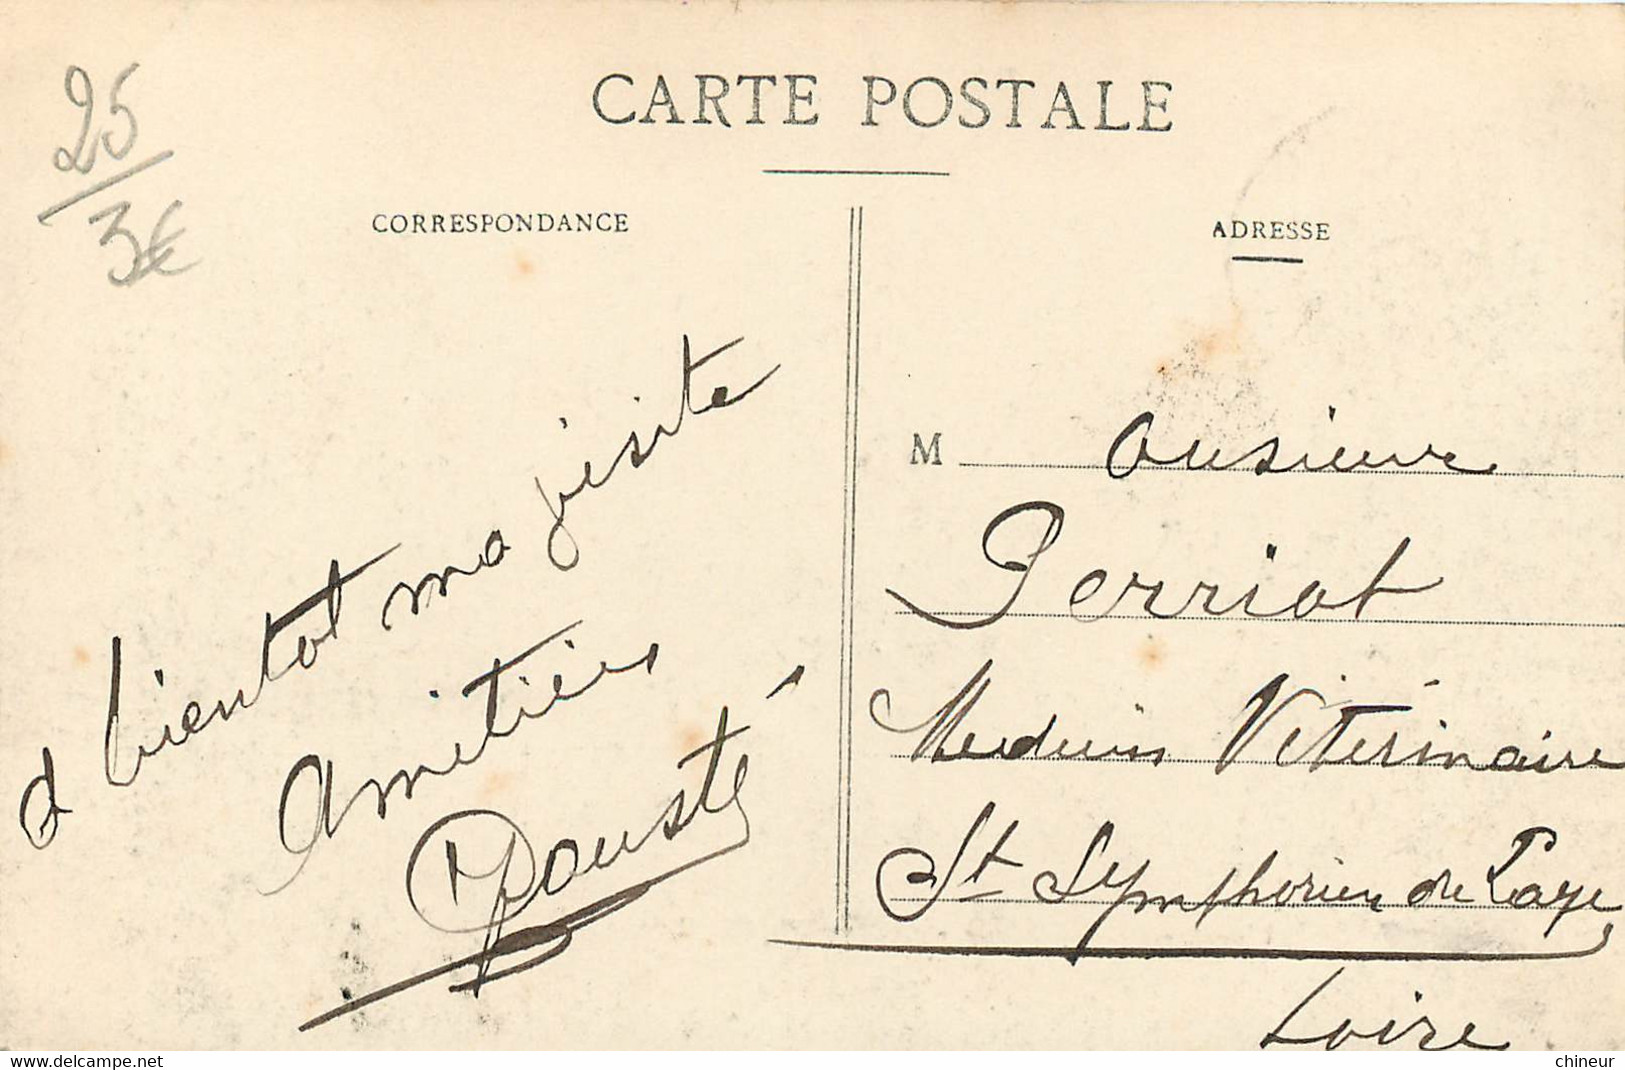 CARTE POSTALE
25
3€
CORRESPONDANCE
a bientot ma visite
Amitiés
ADRESSE
Monsieur
Perriot
Medecin Vétérinaire
St Symphorien de Laye
Loire
https://www.delcampe.net
chineur